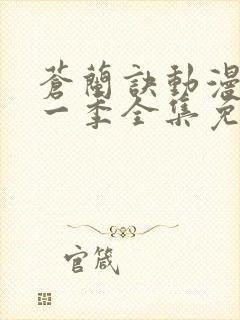 蒼蘭訣動漫
一季全集免
官箴